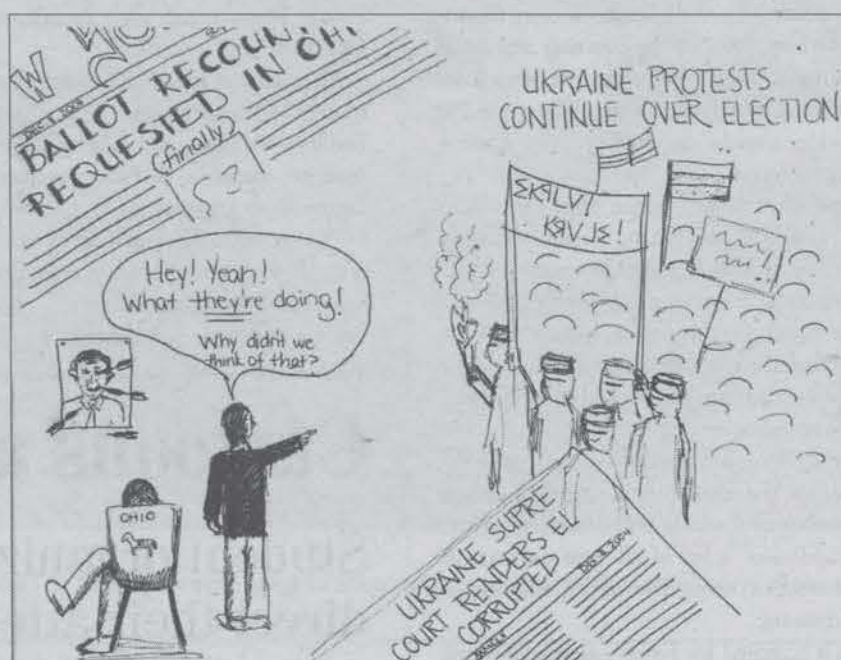 BALLOT RECOUN
REQUESTED IN OH
(finally)
UKRAINE PROTESTS
CONTINUE OVER ELECTION
ΣKЯLV!
KЯVJΣ!
Hey! Yeah!
What they're doing!
Why didn't we
think of that?
OHIO
UKRAINE SUPRE
COURT RENDERS EL
CORRUPTED
DEC 3, 2004